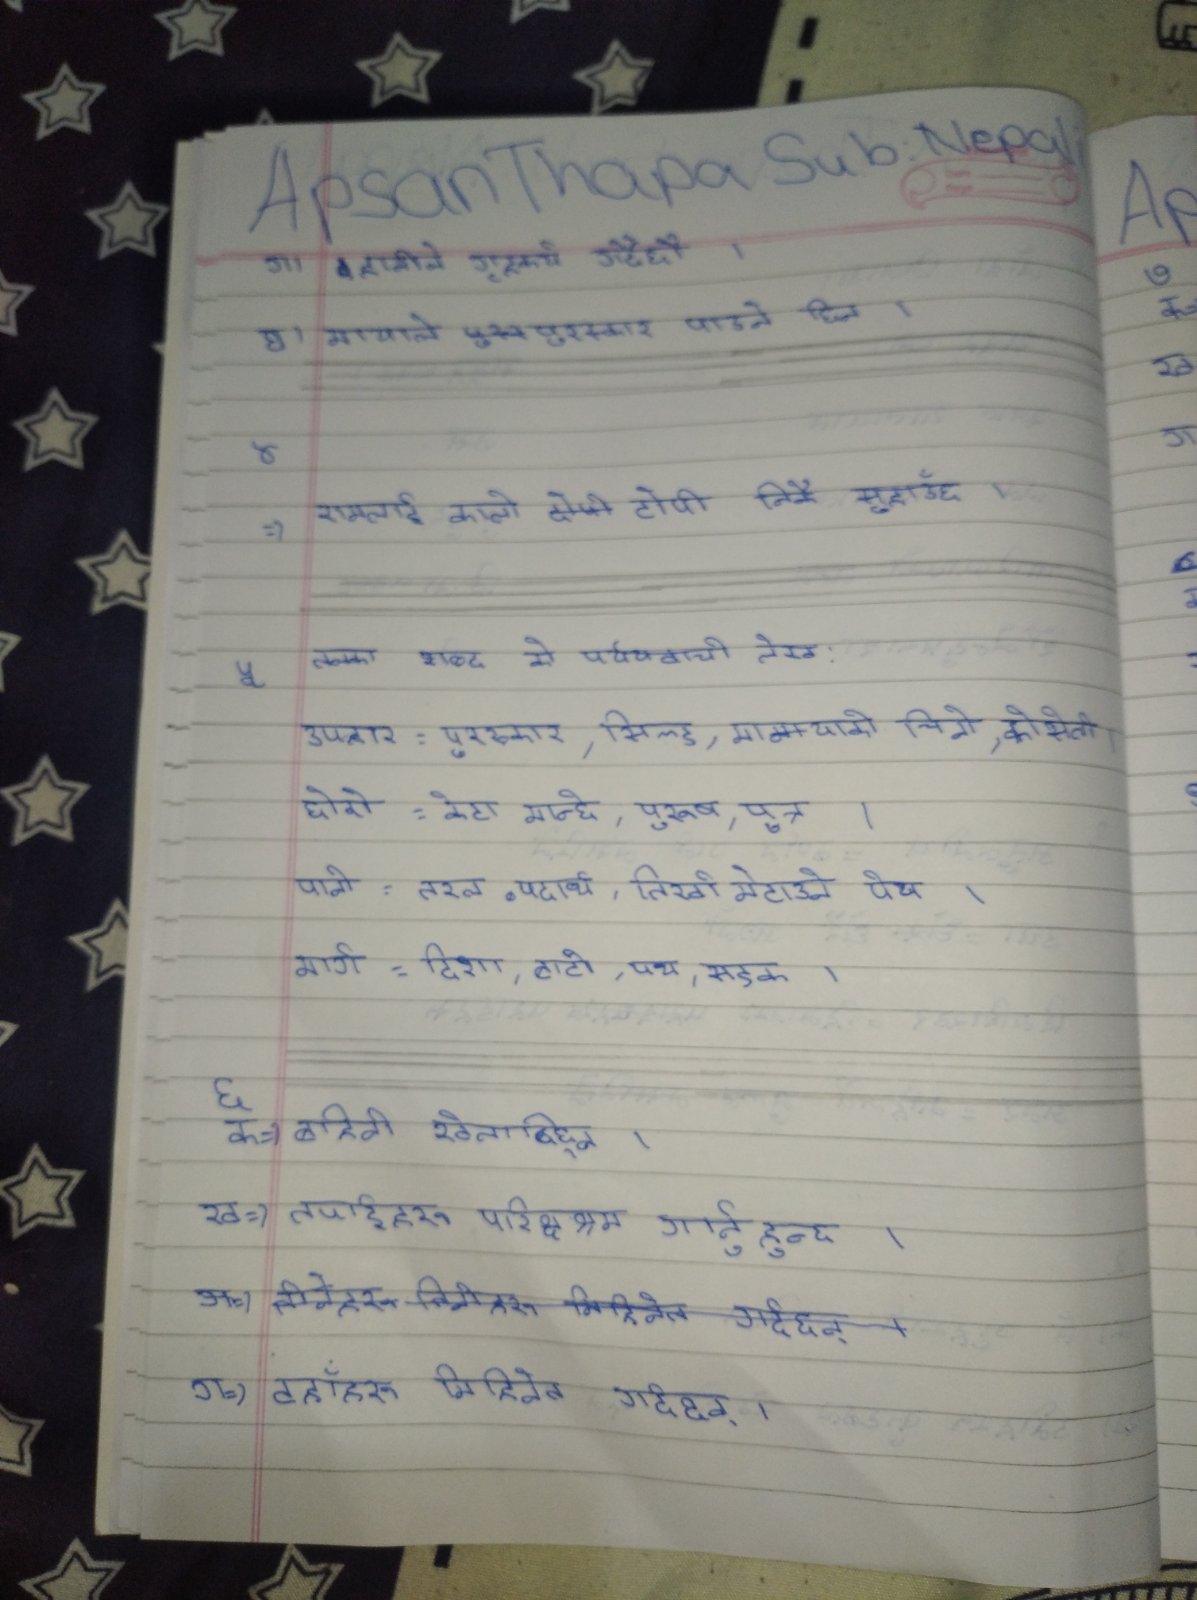 Apsan Thapa Sub: Nepali
ग। हामीले गृहकार्य गर्दैछौं ।
घ। मायाले पुरस्कार पाउने छिन ।
४
=> रामलाई कालो टोपी निकै सुहाउँछ ।
५ तलका शब्द को पर्यायवाची लेख:
उपहार = पुरस्कार, सिल्ड, मायाको चिनो, कोसेली ।
छोरो = केटा मान्छे, पुरूष, पुत्र ।
पानी = तरल पदार्थ, तिर्खा मेटाउने पेय ।
मार्ग = दिशा, बाटो, पथ, सडक ।
६
क=> बहिनी खेल्दछिन् ।
ख=> तपाईहरू परिश्रम गर्नुहुन्छ ।
ग=> तीनीहरू मिहिनेत गर्दछन् ।
ग=> वहाँहरू मिहिनेत गर्दछन् ।
Ap
७
क=
ख
ग